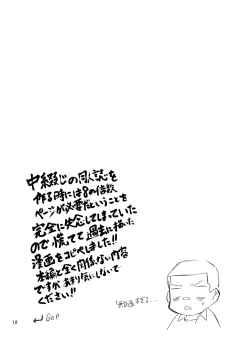 中綴じの同人誌を
作る時には8の倍数
ページが必要だということを
完全に失念してしまっていた
ので慌てて過去に描いた
漫画をコピペしました!!
本編と全く関係ない内容
ですがあまり気にしないで
ください!!
無計画すぎる…
12